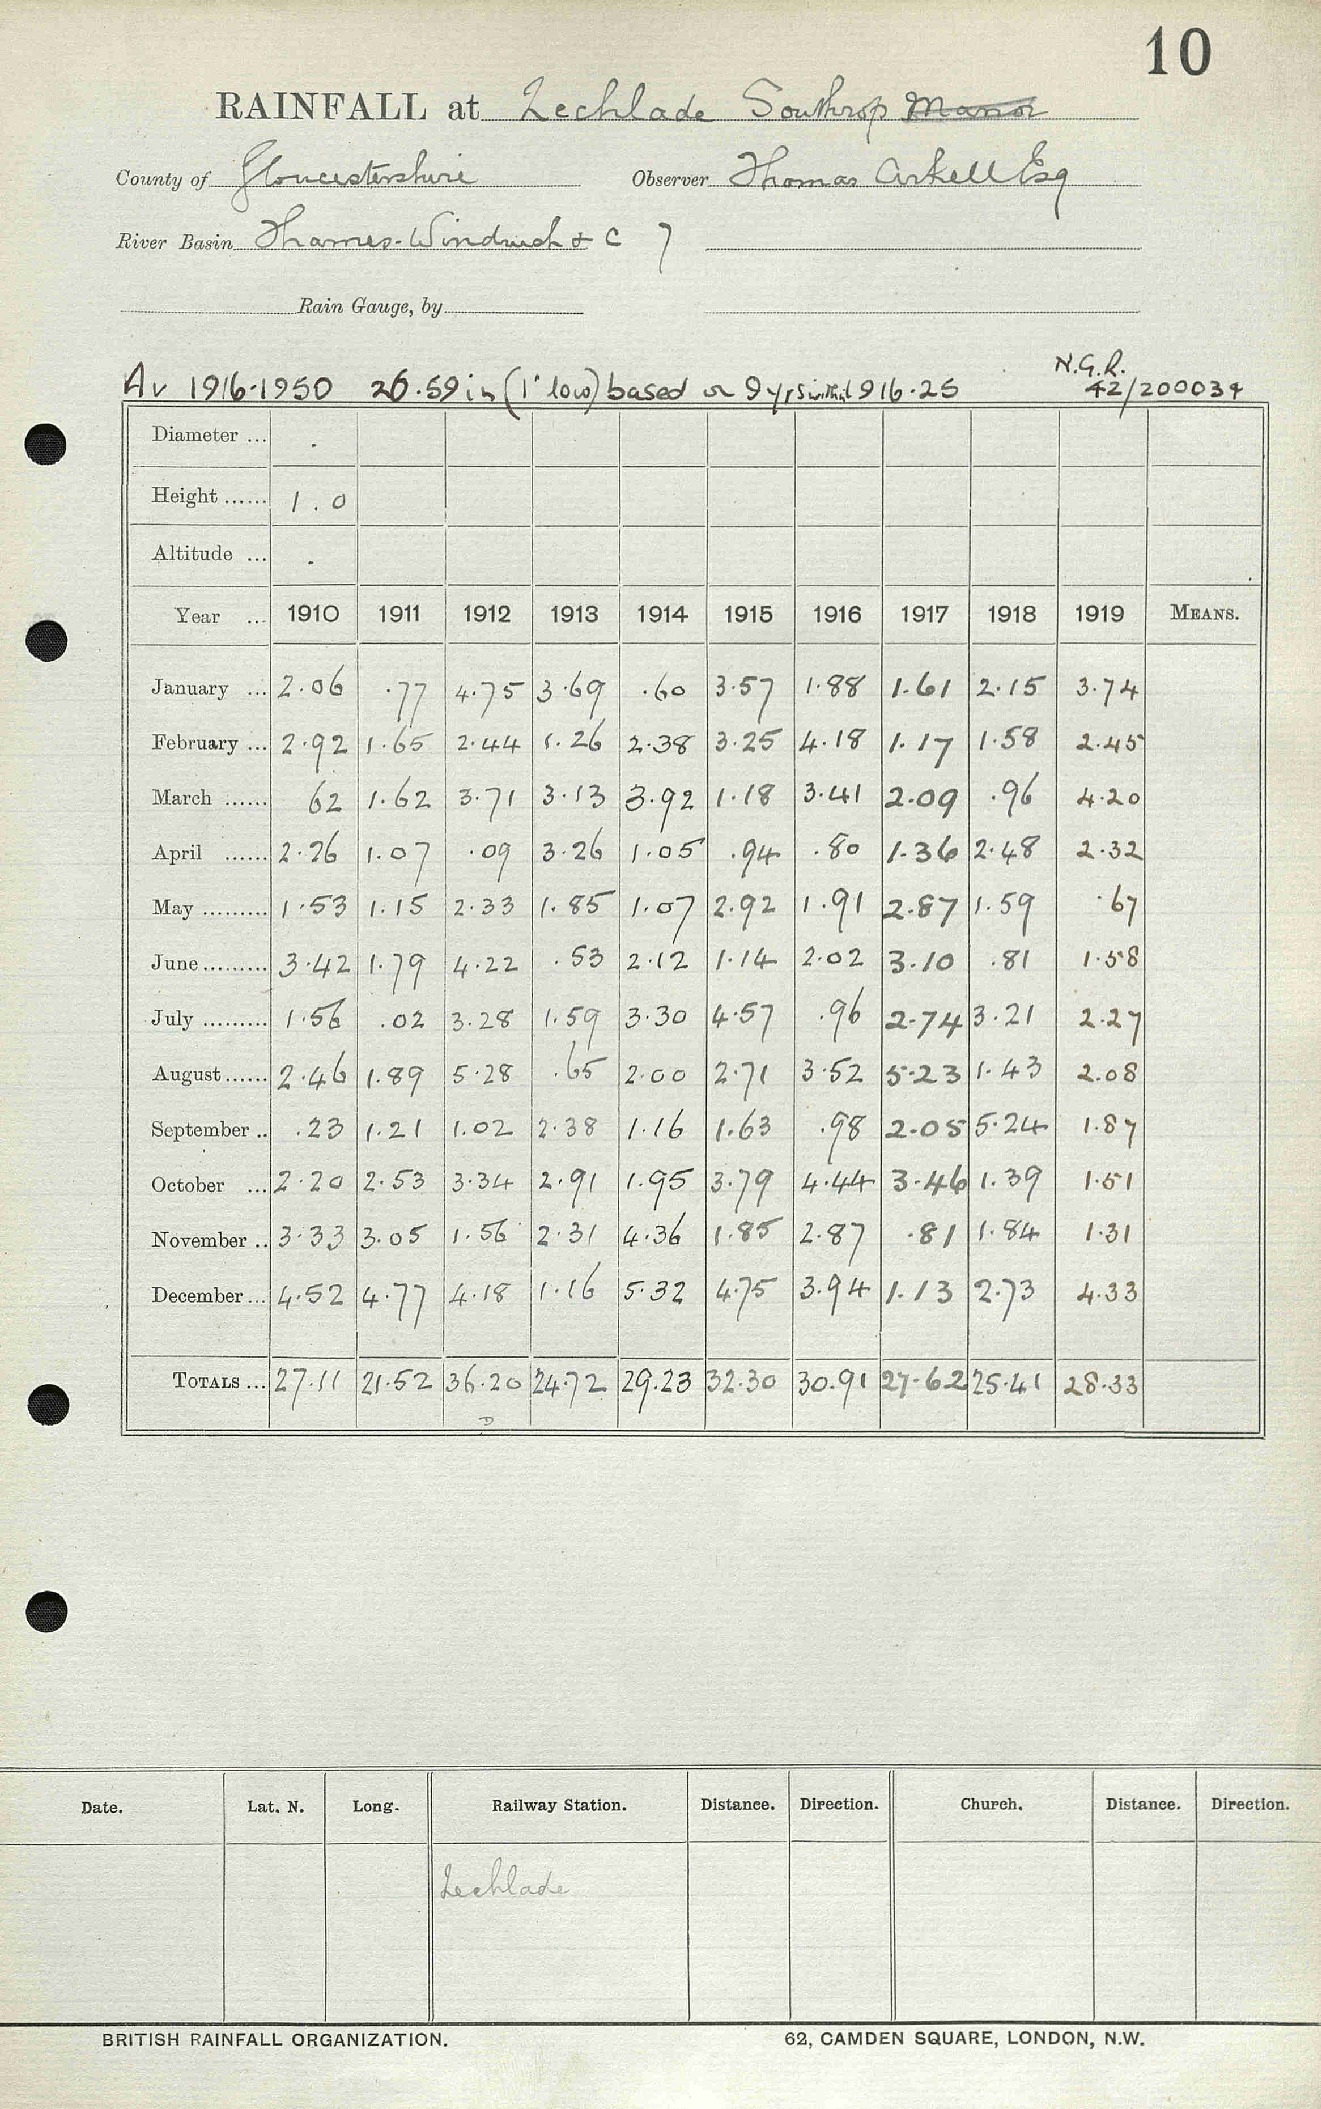 10
RAINFALL at Lechlade Southrop Manor
County of Gloucestershire Observer Thomas Arkell Esq
River Basin Thames-Windrush & C 7
Rain Gauge, by
N.G.R.
Av 1916-1950 26.59 in (1' low) based on 9 yrs within 1916-25 42/200034
Diameter ... .
Height ...... 1.0
Altitude ... .
Year ... 1910 1911 1912 1913 1914 1915 1916 1917 1918 1919 MEANS.
January ... 2.06 .77 4.75 3.69 .60 3.57 1.88 1.61 2.15 3.74
February ... 2.92 1.65 2.44 1.26 2.38 3.25 4.18 1.17 1.58 2.45
March ...... 62 1.62 3.71 3.13 3.92 1.18 3.41 2.09 .96 4.20
April ...... 2.26 1.07 .09 3.26 1.05 .94 .80 1.36 2.48 2.32
May ......... 1.53 1.15 2.33 1.85 1.07 2.92 1.91 2.87 1.59 .67
June ......... 3.42 1.79 4.22 .53 2.12 1.14 2.02 3.10 .81 1.58
July ......... 1.56 .02 3.28 1.59 3.30 4.57 .96 2.74 3.21 2.27
August ...... 2.46 1.89 5.28 .65 2.00 2.71 3.52 5.23 1.43 2.08
September .. .23 1.21 1.02 2.38 1.16 1.63 .98 2.05 5.24 1.87
October ... 2.20 2.53 3.34 2.91 1.95 3.79 4.44 3.46 1.39 1.51
November .. 3.33 3.05 1.56 2.31 4.36 1.85 2.87 .81 1.84 1.31
December ... 4.52 4.77 4.18 1.16 5.32 4.75 3.94 1.13 2.73 4.33
TOTALS ... 27.11 21.52 36.20 24.72 29.23 32.30 30.91 27.62 25.41 28.33
D
Date. Lat. N. Long. Railway Station. Distance. Direction. Church. Distance. Direction.
Lechlade
BRITISH RAINFALL ORGANIZATION. 62, CAMDEN SQUARE, LONDON, N.W.